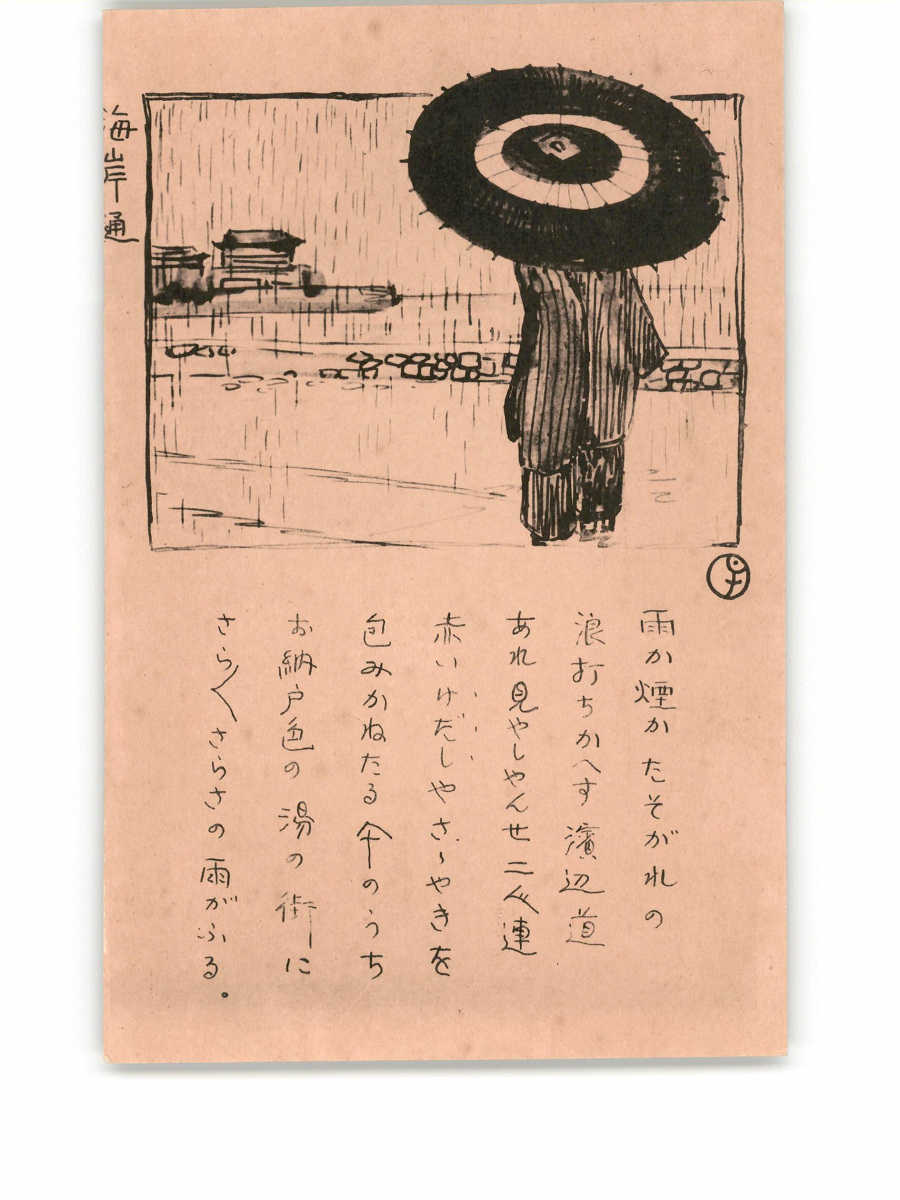 海岸通
雨か煙かたそがれの
浪打ちかへす濱辺道
あれ見やしやんせ二人連
赤いけだしやさゝやきを
包みかねたる傘のうち
お納戸色の湯の街に
さら〳〵さらさの雨がふる。